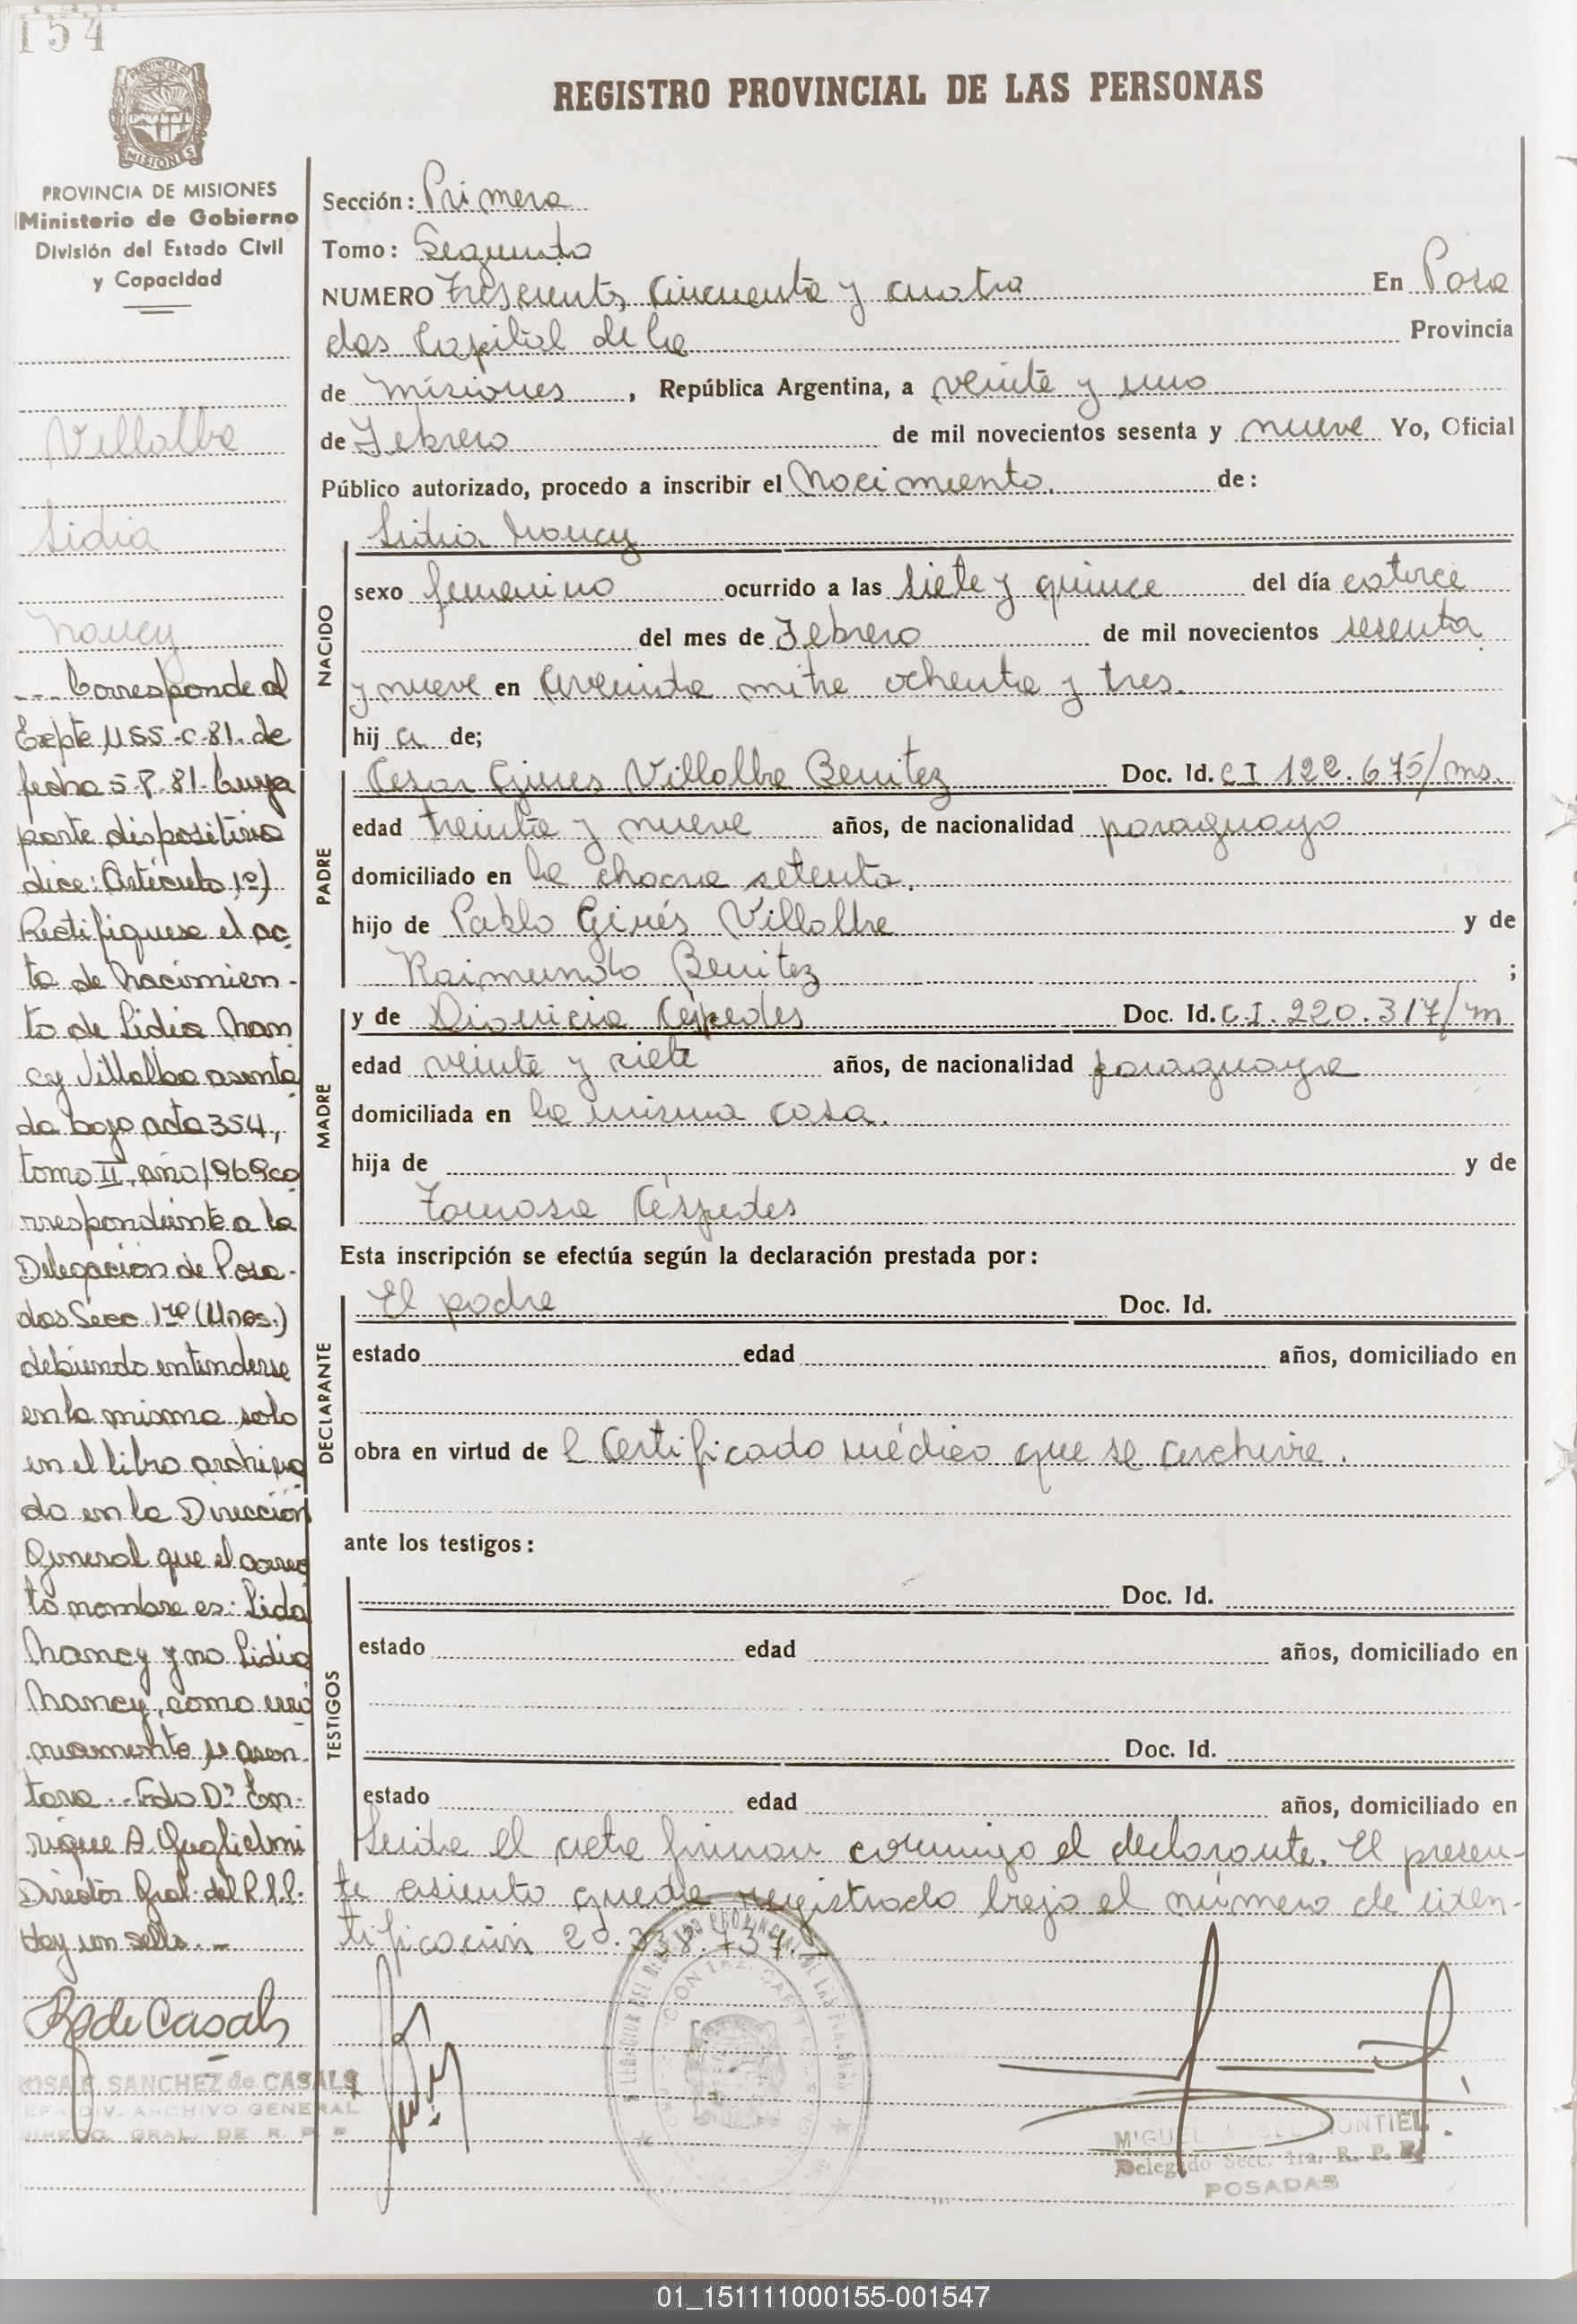 154
PROVINCIA DE MISIONES
Ministerio de Gobierno
División del Estado Civil
y Capacidad
Villalba
Lidia
Nancy
--- Corresponde al
Expte 1155-c-81. de
fecha 5-8-81. Cuya
parte dispositiva
dice: Artículo 1º)
Rectifíquese el ac
ta de nacimien-
to de Lidia Nan
cy Villalba asenta
da bajo acta 354,
tomo II, año 1969 co
rrespondiente a la
Delegación de Posa-
das Secc 1ra (Mnes.)
debiendo entenderse
en la misma solo
en el libro archiva
do en la Dirección
General que el correc
to nombre es: Lida
Nancy y no Lidia
Nancy, como erró
neamente se asen-
tara.- Fdo Dº En-
rique A. Guglielmi
Director Gral. del R.P.P.
Hay un sello.-
R de Casals
ROSA E. SANCHEZ de CASALS
JEFA DIV. ARCHIVO GENERAL
DIRECC. GRAL. DE R. P. P
REGISTRO PROVINCIAL DE LAS PERSONAS
Sección: Primera
Tomo: Segundo
NUMERO Trescientos cincuenta y cuatro En Posa
das Capital de la Provincia
de Misiones, República Argentina, a veinte y uno
de Febrero de mil novecientos sesenta y nueve Yo, Oficial
Público autorizado, procedo a inscribir el Nacimiento. de:
Lidia Nancy
NACIDO
sexo femenino ocurrido a las siete y quince del día catorce
del mes de Febrero de mil novecientos sesenta
y nueve en Avenida mitre ochenta y tres.
hij a de;
PADRE
Cesar Gines Villalba Benitez Doc. Id. C I 122.675/ms.
edad treinta y nueve años, de nacionalidad paraguayo
domiciliado en la chacra setenta.
hijo de Pablo Ginés Villalba y de
Raimunda Benitez ;
MADRE
y de Dionicia Céspedes Doc. Id. C.I. 220.317/m
edad veinte y siete años, de nacionalidad paraguaya
domiciliada en la misma casa.
hija de y de
Tomasa Céspedes
Esta inscripción se efectúa según la declaración prestada por:
DECLARANTE
El padre Doc. Id.
estado edad años, domiciliado en
obra en virtud de l Certificado médico que se archiva.
ante los testigos:
TESTIGOS
Doc. Id.
estado edad años, domiciliado en
Doc. Id.
estado edad años, domiciliado en
Leida el acta firman conmigo el declarante. El presen-
te asiento queda registrado bajo el número de iden-
tificación 20.338.737.
MIGUEL ANGEL MONTIEL
Delegado Secc. 1ra. R. P. P.
POSADAS
01_151111000155-001547